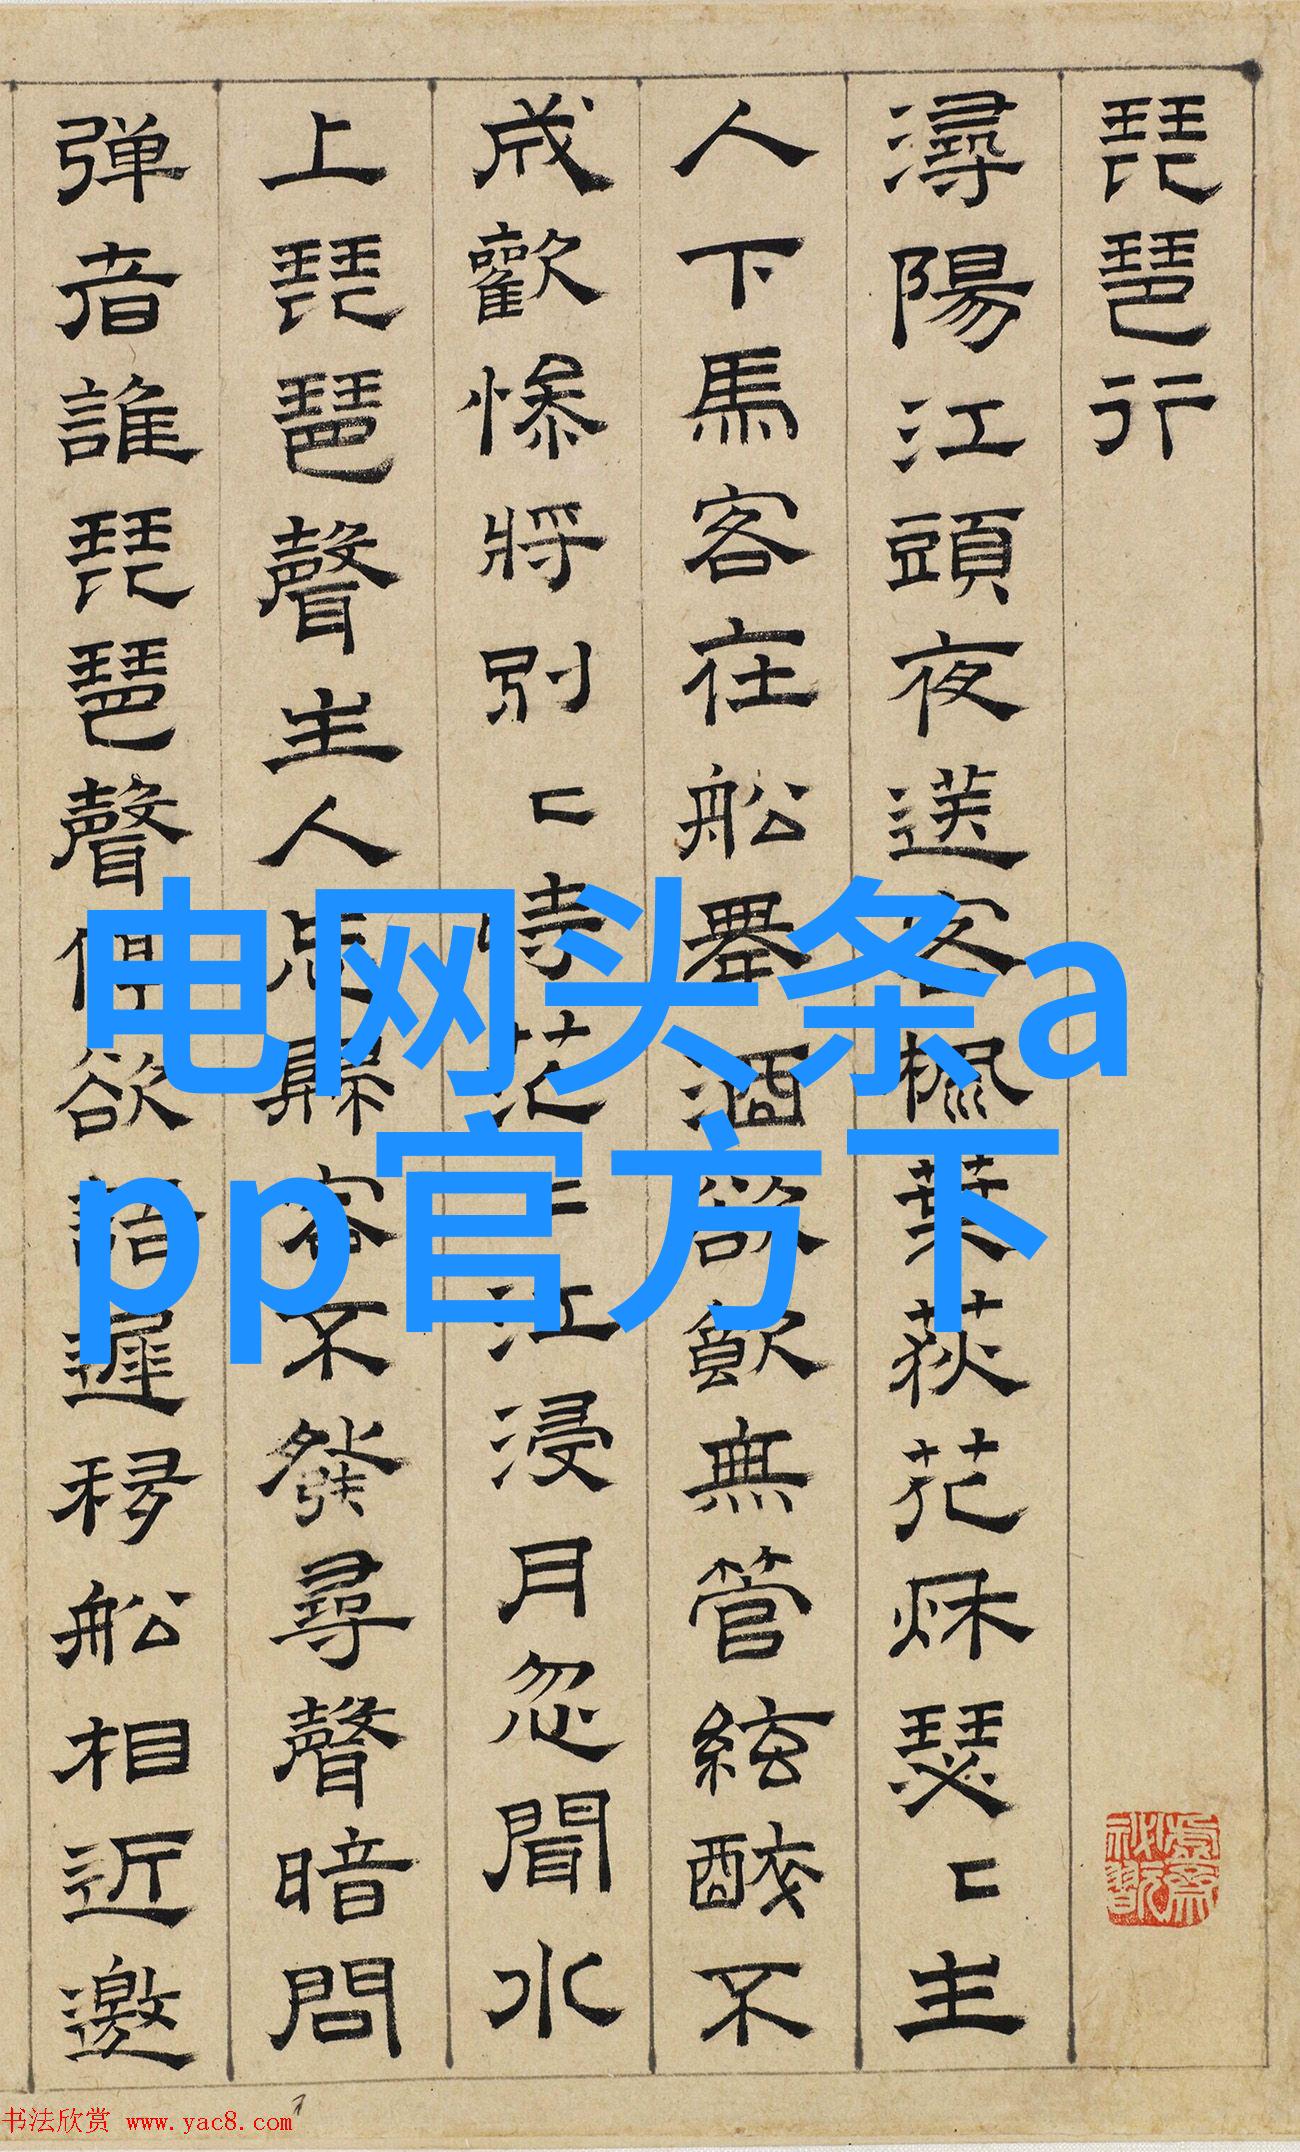 琵琶行
潯陽江頭夜送客楓葉荻花秌瑟〻主
人下馬客在船舉酒欲飲無管絃醉不
成歡慘將別〻時茫茫江浸月忽聞水
上琵琶聲主人忘歸客不發尋聲暗問
弹者誰琵琶聲停欲語遲移船相近邀
电网头条a
pp官方下
书法欣赏 www.yac8.com